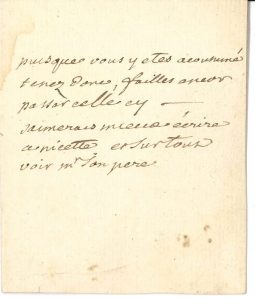 puisque vous y etes acoutumé
tenez donc, failles ancor
passer celle cy —
jaimerais mieux écrire
a picette et surtout
voir mr son pere